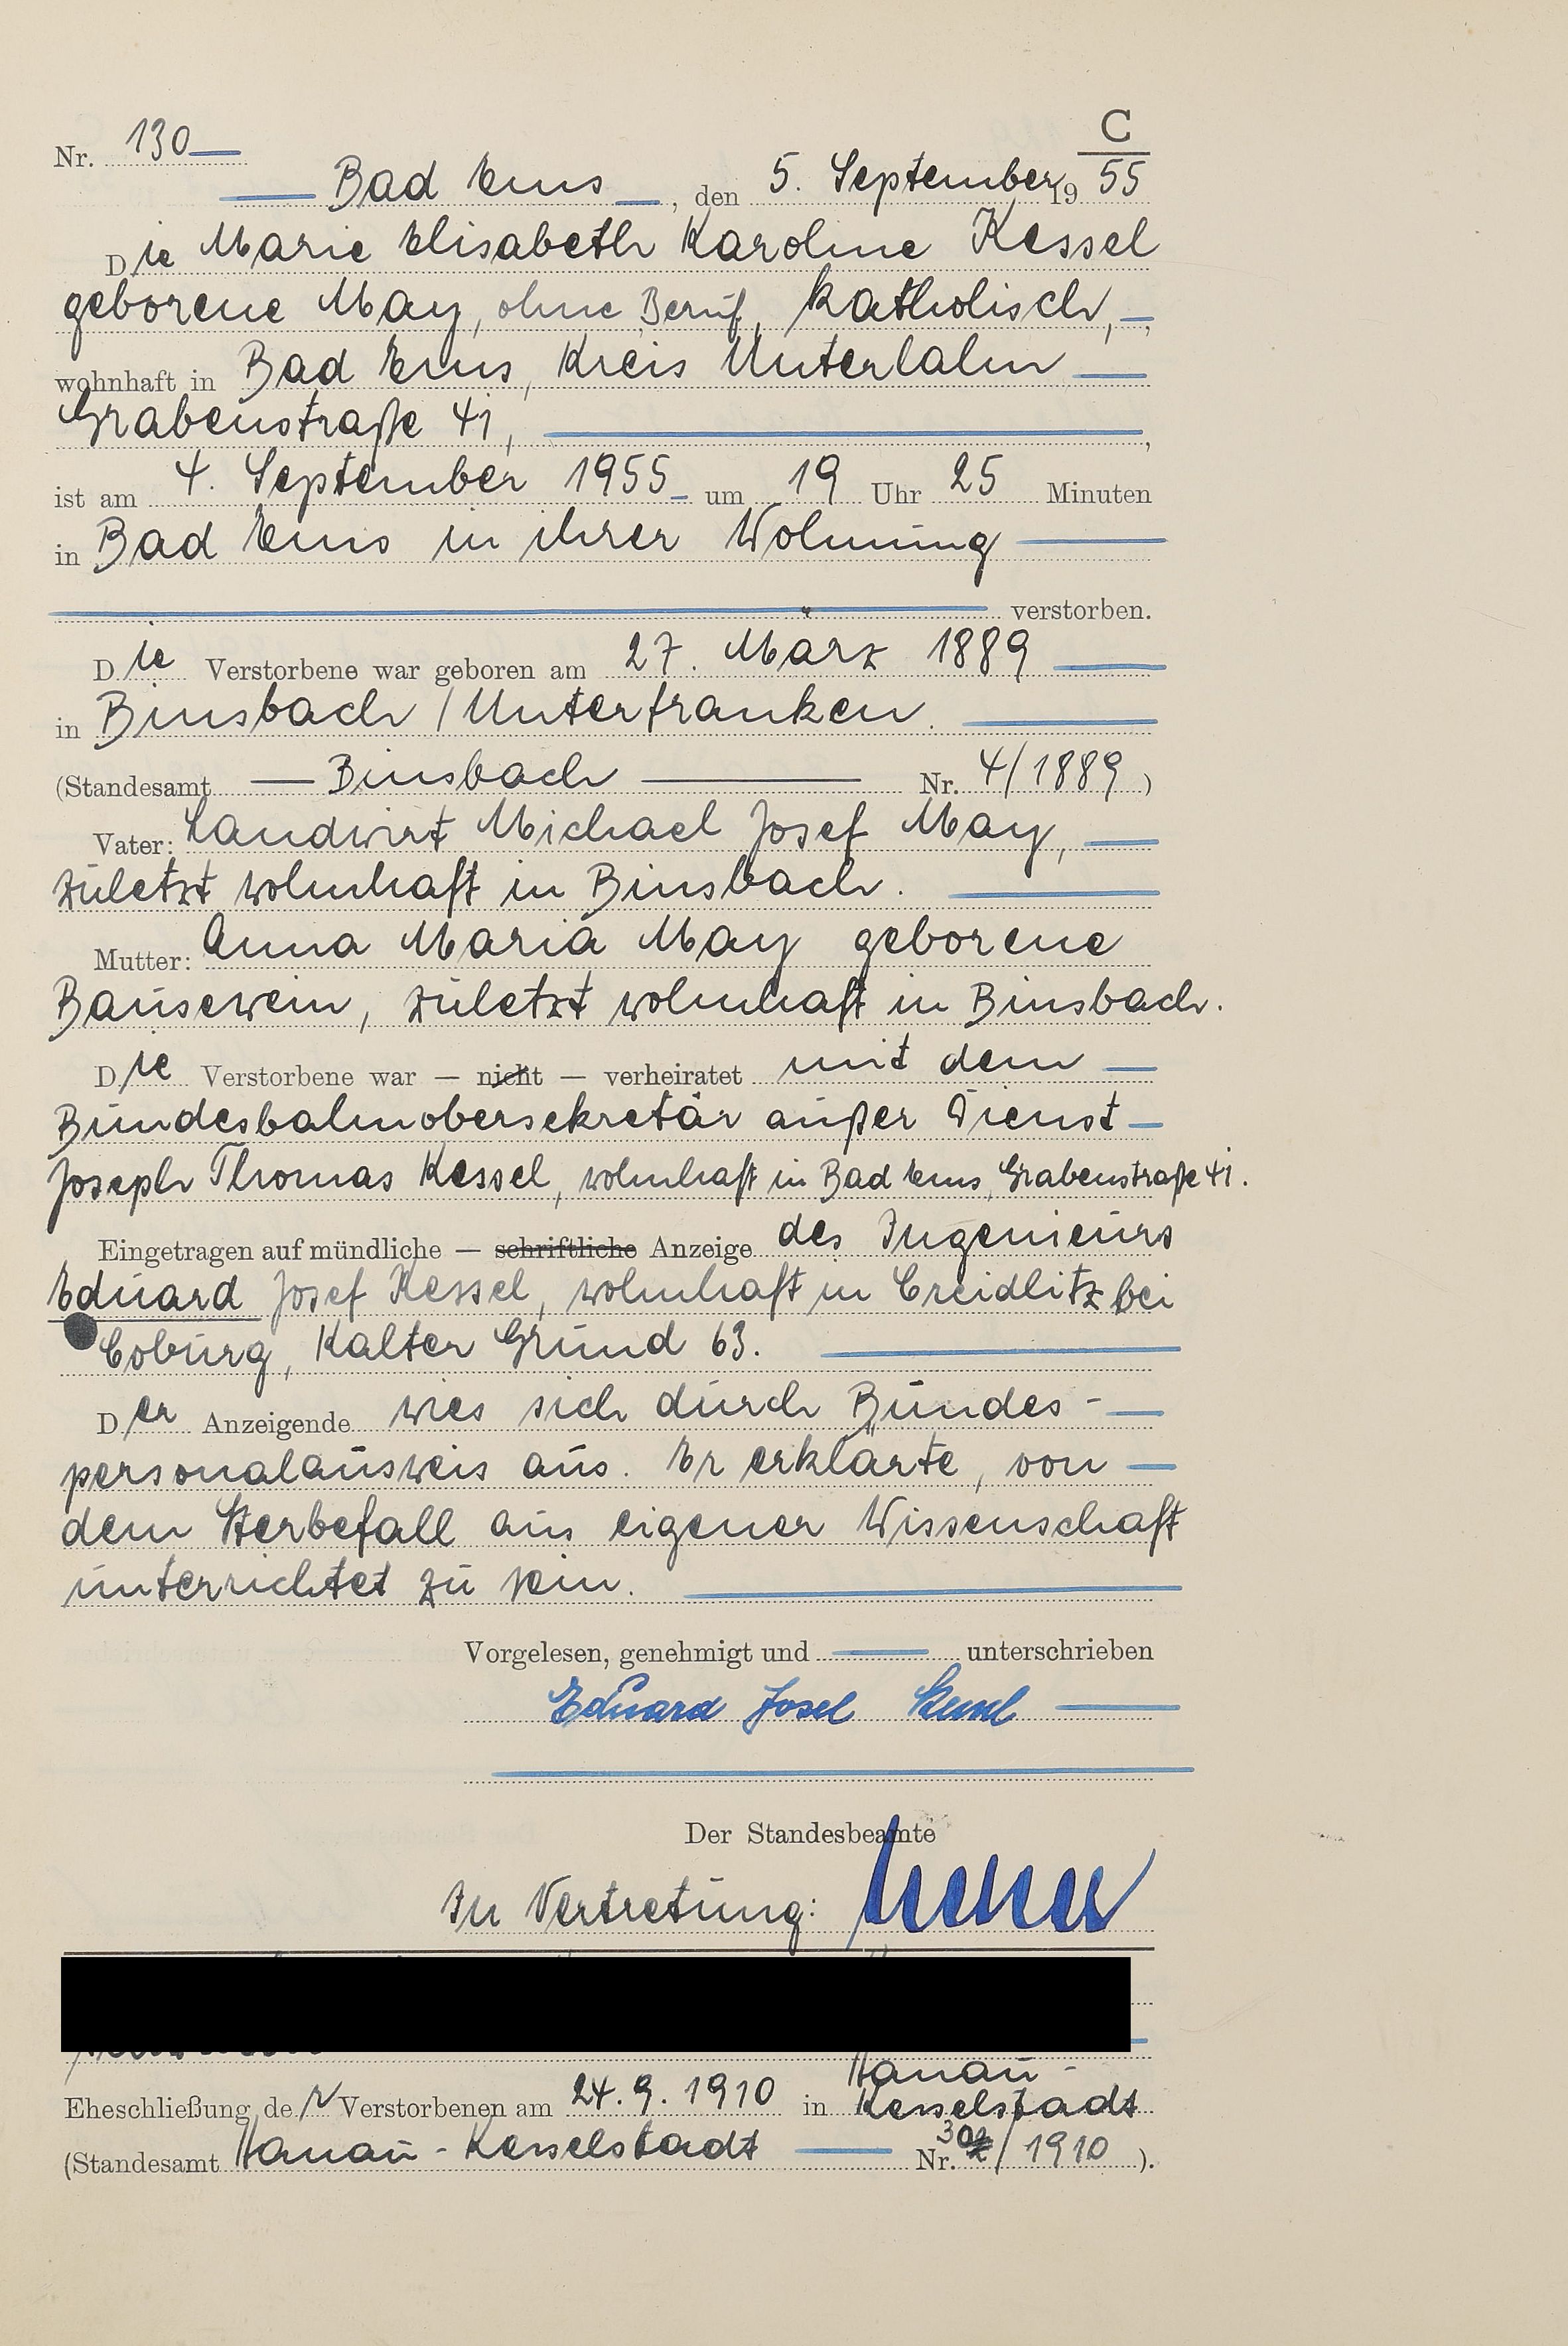 C
Nr. 130
Bad Ems, den 5. September 1955
Die Marie Elisabeth Karoline Kessel
geborene May, ohne Beruf, katholisch,
wohnhaft in Bad Ems, Kreis Unterlahn
Grabenstraße 41,
ist am 4. September 1955 um 19 Uhr 25 Minuten
in Bad Ems in ihrer Wohnung
verstorben.
Die Verstorbene war geboren am 27. März 1889
in Binsbach / Unterfranken.
(Standesamt Binsbach Nr. 4/1889)
Vater: Landwirt Michael Josef May,
zuletzt wohnhaft in Binsbach.
Mutter: Anna Maria May geborene
Bausewein, zuletzt wohnhaft in Binsbach.
Die Verstorbene war — nicht — verheiratet mit dem
Bundesbahnobersekretär außer Dienst
Joseph Thomas Kessel, wohnhaft in Bad Ems, Grabenstraße 41.
Eingetragen auf mündliche — schriftliche Anzeige des Ingenieurs
Eduard Josef Kessel, wohnhaft in Creidlitz bei
Coburg, Kalter Grund 63.
Der Anzeigende wies sich durch Bundes-
personalausweis aus. Er erklärte, von
dem Sterbefall aus eigener Wissenschaft
unterrichtet zu sein.
Vorgelesen, genehmigt und unterschrieben
Eduard Josef Kessel
Der Standesbeamte
In Vertretung:
Hanau-
Eheschließung der Verstorbenen am 24.9.1910 in Kesselstadt
(Standesamt Hanau-Kesselstadt Nr. /1910).